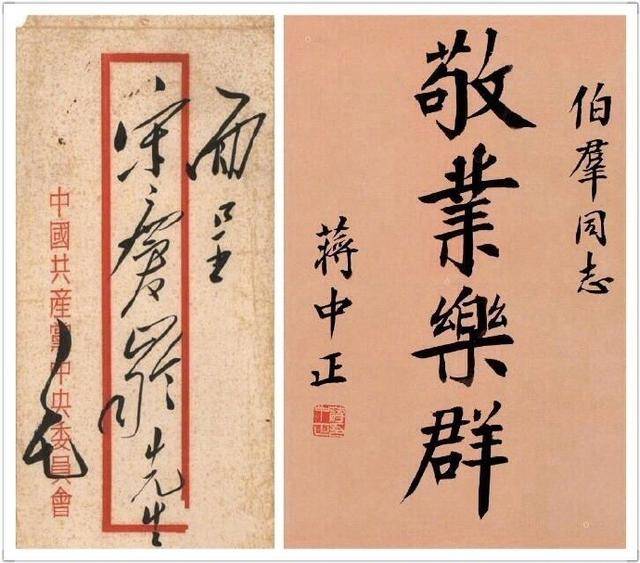 面呈
宋慶齡先生
中國共産黨中央委員會
毛
伯羣同志
敬業樂群
蔣中正